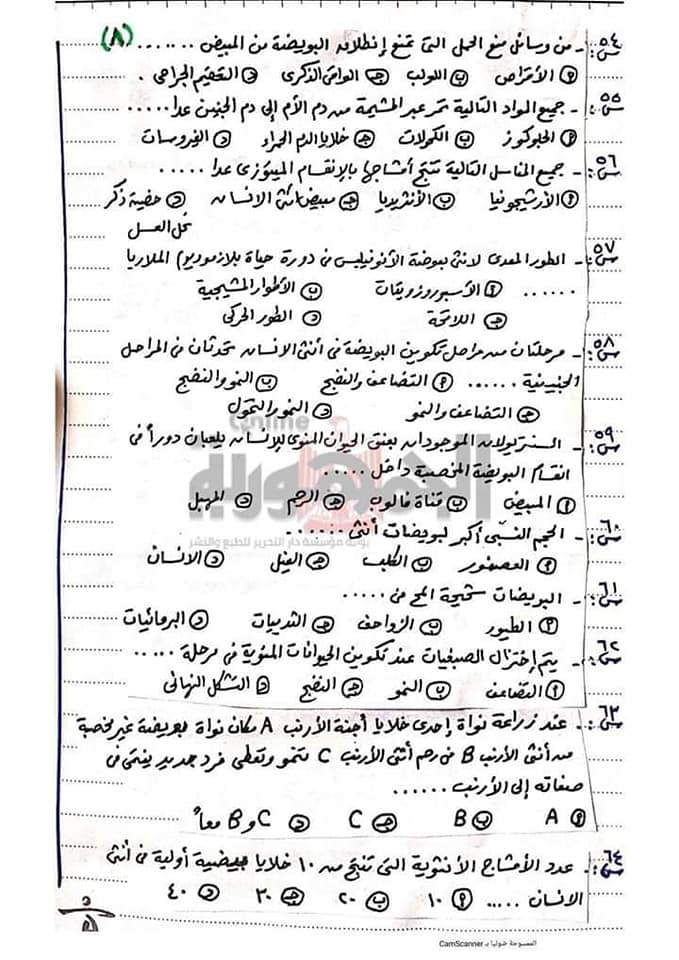 (٨)
س٥٤:- من وسائل منع الحمل التى تمنع إنطلاق البويضة من المبيض ......
أ الأقراص ب اللولب جـ الواقى الذكرى د التعقيم الجراحى .
س٥٥:- جميع المواد التالية تمر عبر المشيمة من دم الأم إلى دم الجنين عدا .....
أ الجلوكوز ب الكحولات جـ خلايا الدم الحمراء د الفيروسات
س٥٦:- جميع المناسل التالية تنتج أمشاجها بالإنقسام الميوزى عدا .....
أ الأرشيجونيا ب الأنثريديا جـ مبيض أنثى الإنسان د خصية ذكر
نحل العسل
س٥٧:- الطور المعدى لأنثى بعوضة الأنوفيليس فى دورة حياة بلازموديوم الملاريا
...... أ الأسبوروزويتات ب الأطوار المشيجية
جـ اللاقحة د الطور الحركى
س٥٨:- مرحلتان من مراحل تكوين البويضة فى أنثى الإنسان تحدثان فى المراحل
الجنينية ...... أ التضاعف والنضج ب النمو والنضج
جـ التضاعف والنمو د النمو والتحول
س٥٩:- السنتريولان الموجودان بعنق الحيوان المنوى للإنسان يلعبان دوراً فى
انقسام البويضة المخصبة داخل .....
أ المبيض ب قناة فالوب جـ الرحم د المهبل
Online
الجمهورية
بوابة مؤسسة دار التحرير للطبع والنشر
س٦٠:- الحجم النسبى أكبر لبويضات أنثى ......
أ العصفور ب الكلب جـ الفيل د الإنسان
س٦١:- البويضات شحيحة المح فى .....
أ الطيور ب الزواحف جـ الثدييات د البرمائيات
س٦٢:- يتم إختزال الصبغيات عند تكوين الحيوانات المنوية فى مرحلة .....
أ التضاعف ب النمو جـ النضج د التشكل النهائى
س٦٣:- عند زراعة نواة إحدى خلايا أجنة الأرنب A مكان نواة بويضة غير مخصبة
من أنثى الأرنب B فى رحم أنثى الأرنب C تنمو وتعطى فرد جديد ينتمى فى
صفاته إلى الأرنب ......
أ A ب B جـ C د B و C معاً
س٦٤:- عدد الأمشاج الأنثوية التى تنتج من ١٠ خلايا بيضية أولية فى أنثى
الانسان ..... أ ١٠ ب ٢٠ جـ ٣٠ د ٤٠
الممسوحة ضوئيا بـ CamScanner